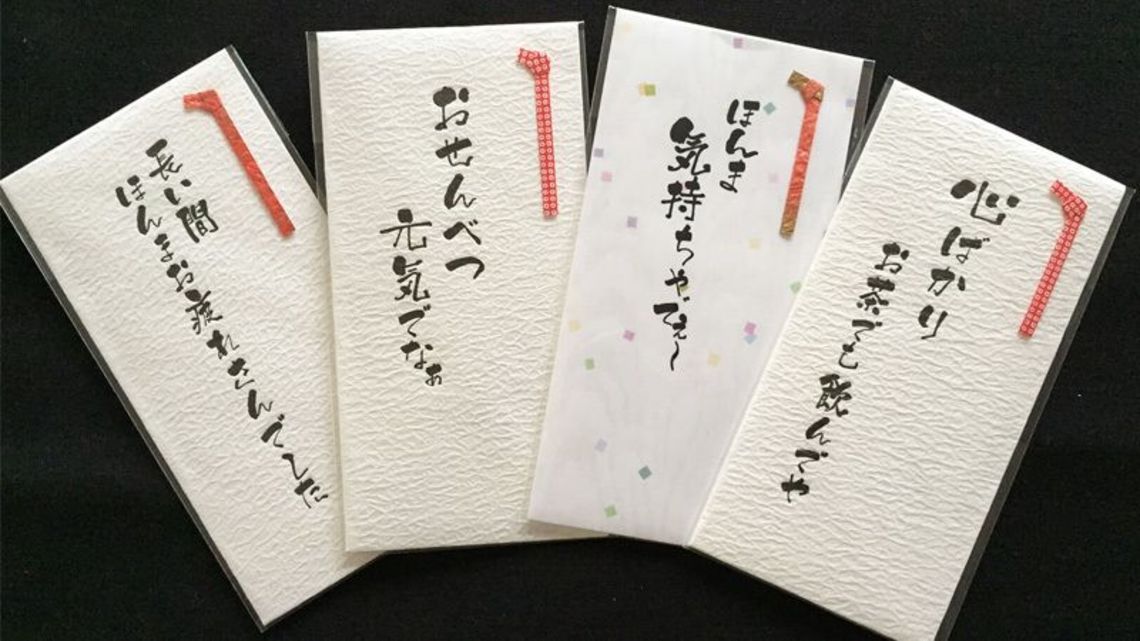 長い間
ほんまお疲れさんでした
おせんべつ
元気でなぁ
ほんま
気持ちやでぇ～
心ばかり
お茶でも飲んでや